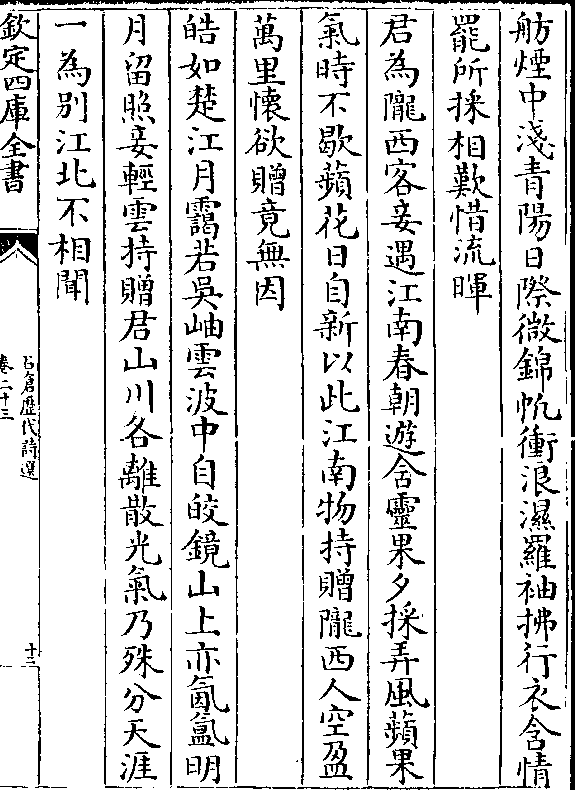 舫煙中淺青陽日際微錦帆衝浪濕羅袖拂行衣含情
罷所採相歎惜流暉
君為隴西客妾遇江南春朝遊含靈果夕採弄風蘋果
氣時不歇蘋花日自新以此江南物持贈隴西人空盈
萬里懷欲贈竟無因
皓如楚江月靄若吳岫雲波中自皎鏡山上亦氤氳明
月留照妾輕雲持贈君山川各離散光氣乃殊分天涯
一為别江北不相聞
欽定四庫全書
石倉歴代詩選
卷二十三
十三